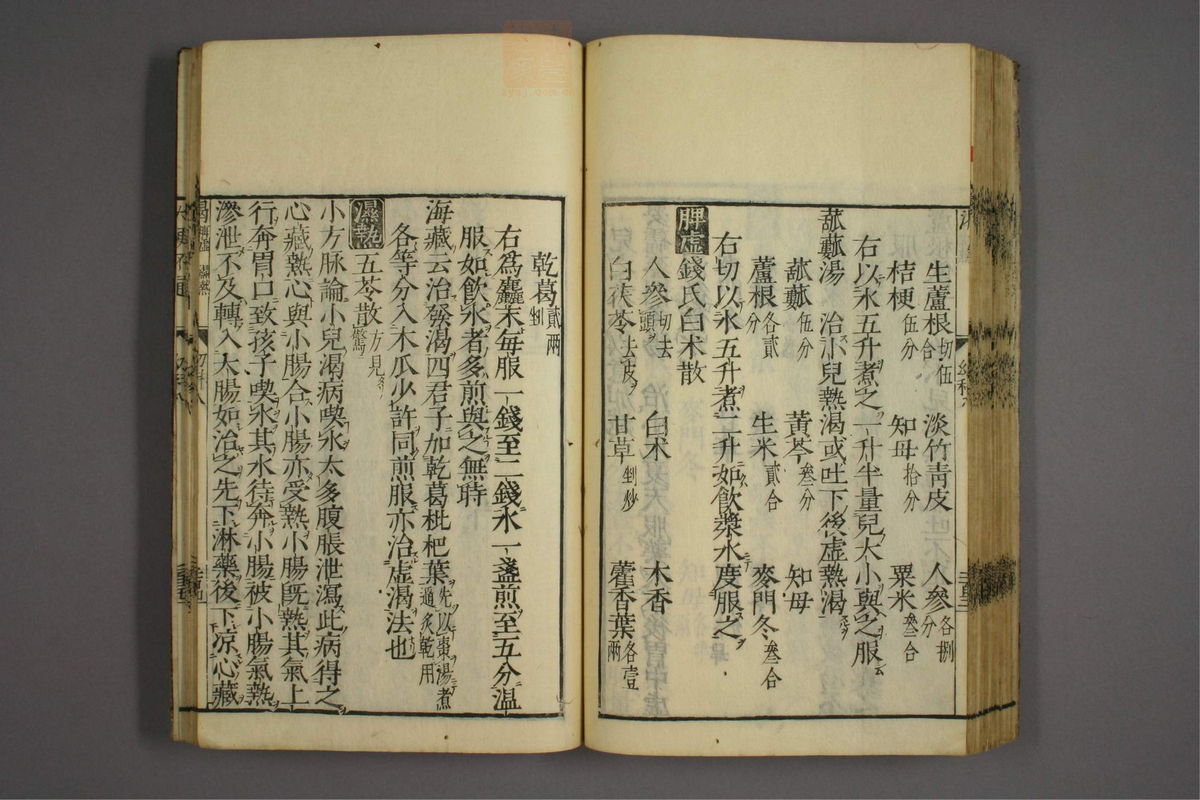 生蘆根切伍合 淡竹靑皮 人參各捌分
桔梗伍分 知母拾分 粟米叄合
右以水五升煮之一升半量兒大小與之服
㼋𤬏湯 治小兒熱渴或吐下後虛熱渴
㼋𤬏伍分 黃芩叄分 知母
蘆根各貳分 生米貳合 麥門冬叄合
右切以水五升煮二升如飲漿水度服之
脾虛 錢氏白朮散
人參切去頭 白朮 木香
白茯苓去皮 甘草剉炒 藿香葉各壹兩
乾葛貳兩剉
右爲麤末每服一錢至二錢水一盞煎至五分溫
服如飲水者多煎與之無時
海藏云治發渴四君子加乾葛枇杷葉先以棗湯煮過炙乾用
各等分入木瓜少許同煎服亦治虛渴法也
濕熱 五苓散方見驚
小方脉論小兒渴病喫水太多腹脹泄瀉此病得之
心藏熱心與小腸合小腸亦受熱小腸旣熱其氣上
行奔胃口致孩子喫水其水待奔小腸被小腸氣熱
滲泄不及轉入大腸如治之先下淋藥後下凉心藏